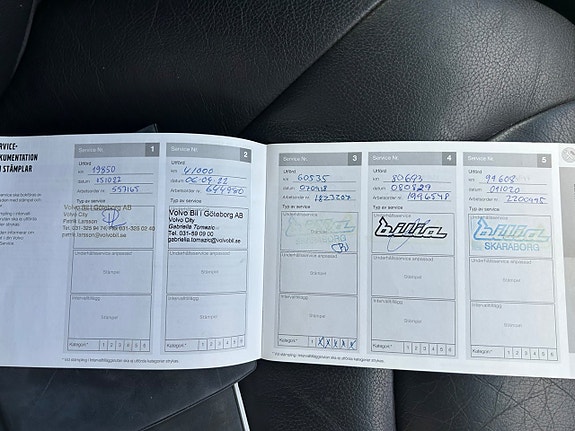 SERVICE-
DOKUMENTATION
STÄMPLAR
Service Nr. 1
Utförd
km 19850
datum 051027
Arbetsorder nr. 557165
Typ av service
Volvo Bil i Göteborg AB
Volvo City
Patrik Larsson
patrik.larsson@volvobil.se
Underhållsservice anpassad
Stämpel
Intervalltillägg
Stämpel
Kategori * 1 2 3 4 5 6
Service Nr. 2
Utförd
km 41000
datum 06-09-22
Arbetsorder nr. 644980
Typ av service
Volvo Bil i Göteborg AB
Volvo City
Gabriella Tomazic
Tel. 031-89 09 00
gabriella.tomazic@volvobil.se
Underhållsservice anpassad
Stämpel
Intervalltillägg
Stämpel
Kategori * 1 2 3 4 5 6
Service Nr. 3
Utförd
km 60535
datum 070918
Arbetsorder nr. 1823207
Typ av service
Underhållsservice
bilia
Underhållsservice anpassad
Stämpel
Intervalltillägg
Stämpel
Kategori * 1 2 3 4 5 6
Service Nr. 4
Utförd
km 80693
datum 080829
Arbetsorder nr. 1996548
Typ av service
Underhållsservice
bilia
Underhållsservice anpassad
Stämpel
Intervalltillägg
Stämpel
Kategori * 1 2 3 4 5 6
Service Nr. 5
Utförd
km 91608
datum 091020
Arbetsorder nr. 2200495
Typ av service
Underhållsservice
bilia
SKARABORG
Underhållsservice anpassad
Stämpel
Intervalltillägg
Stämpel
Kategori * 1 2 3 4 5 6
* Vid stämpling i Intervalltilläggsrutan ska de utförda kategorierna strykas.
* Vid stämpling i Intervalltilläggsrutan ska de utförda kategorierna strykas.